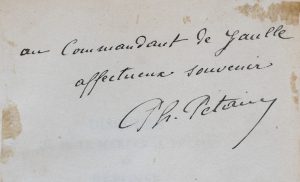 au Commandant de Gaulle
affectueux souvenir
Ph. Pétain